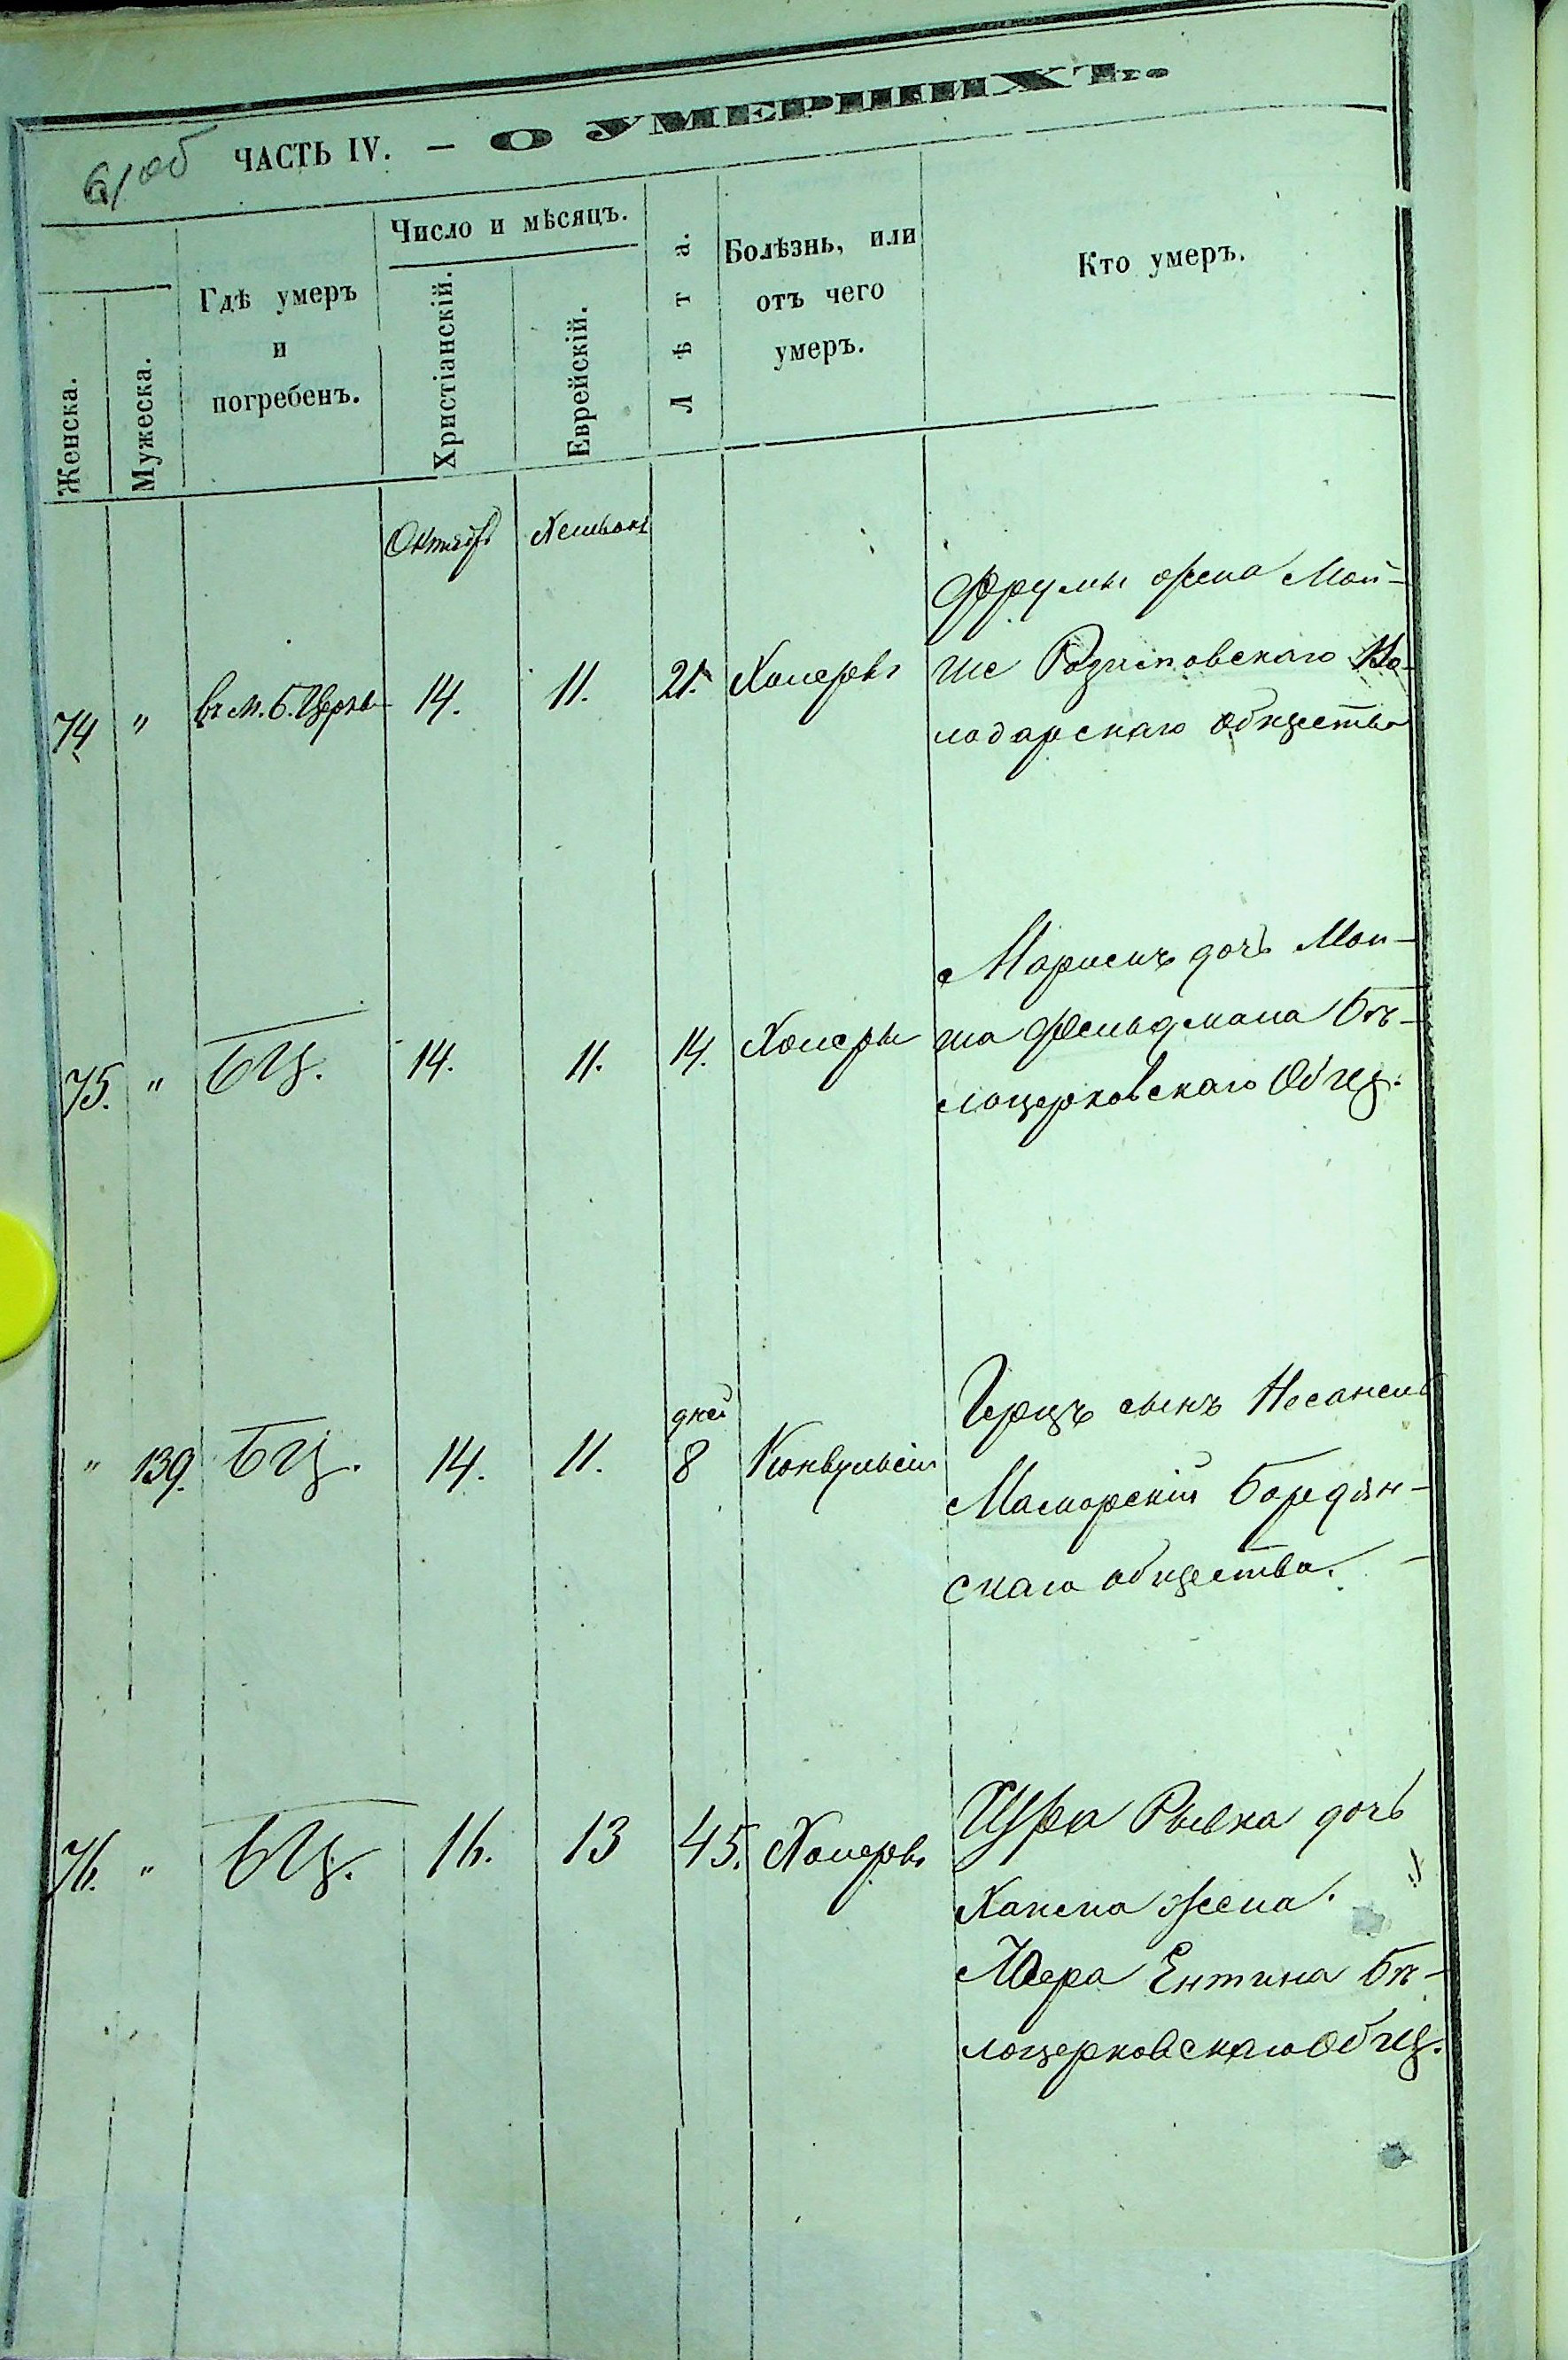 61об
ЧАСТЬ IV. — О УМЕРШИХЪ.
Женска.
Мужеска.
Гдѣ умеръ
и
погребенъ.
Число и мѣсяцъ.
Христіанскій.
Еврейскій.
Лѣта.
Болѣзнь, или
отъ чего
умеръ.
Кто умеръ.
Октября Хешвонъ
74 " въ м. Б. Церкв 14. 11. 21. Холеры
Фрумы жена Мой-
ше Розиповскаго Во-
лодарскаго общества
75. " БЦ. 14. 11. 14. Холеры
Марисиъ дочь Мои-
ша Фельдмана Бѣ-
лоцерковскаго Общ.
" 139. БЦ. 14. 11. дней 8 Конвульсіи
Герцъ сынъ Несанеля
Масморскій Бородян-
скаго общества.
76. " БЦ. 16. 13 45. Холеры
Цура Рывка дочь
Хаиема жена.
Лзера Ентина Бѣ-
лоцерковскаго Общ.